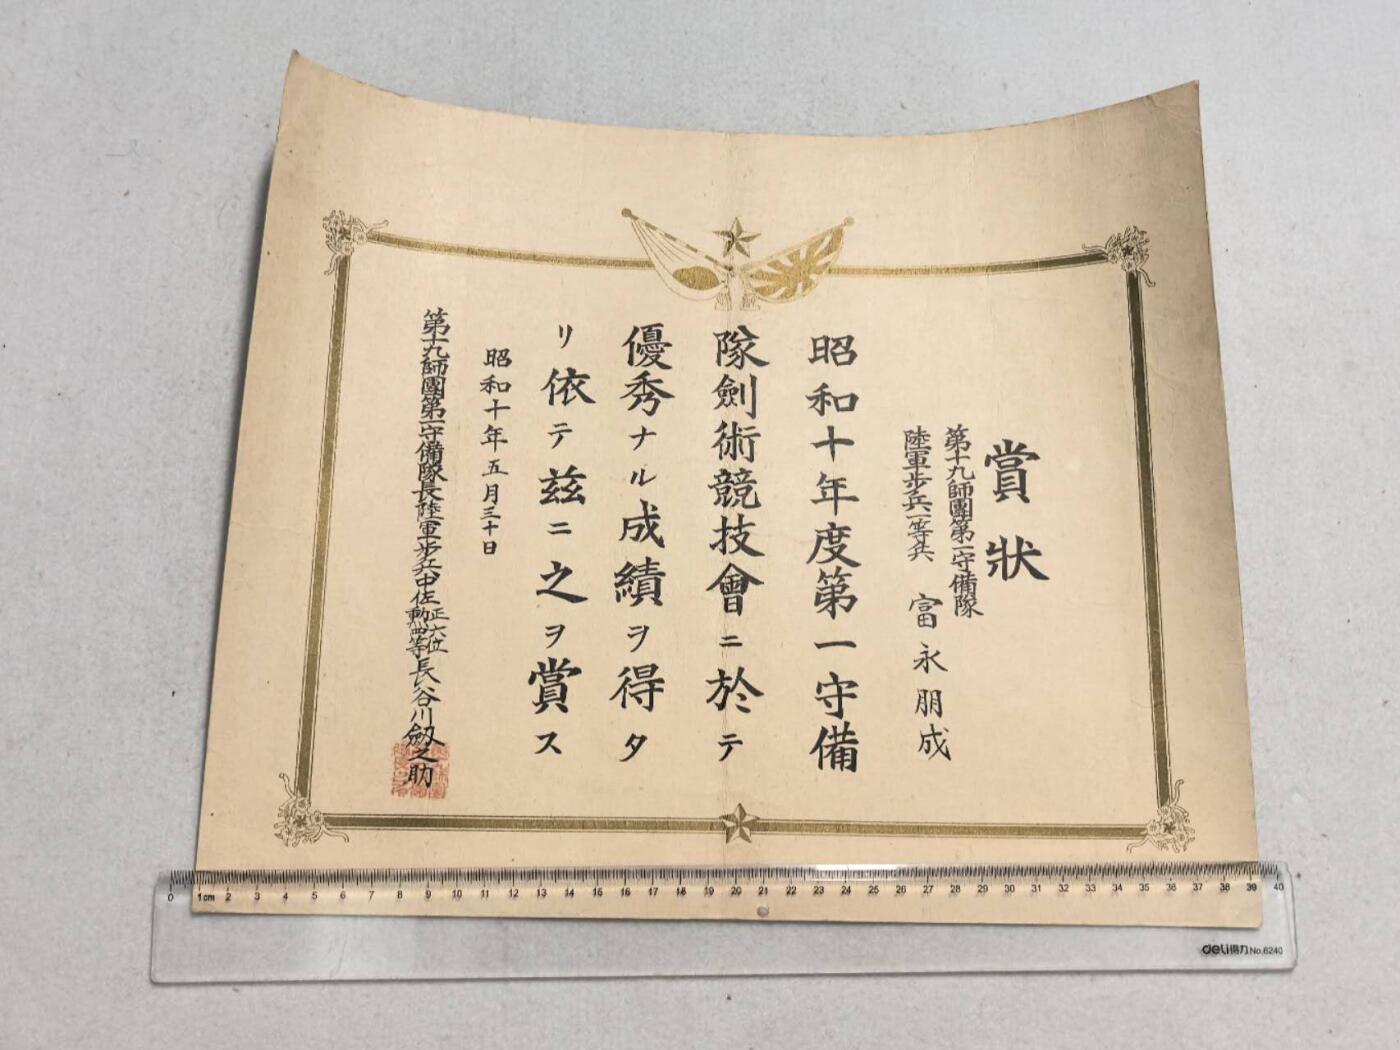 賞狀
第十九師團第一守備隊
陸軍步兵一等兵 富永朋成
昭和十年度第一守備
隊劍術競技會ニ於テ
優秀ナル成績ヲ得タ
リ依テ茲ニ之ヲ賞ス
昭和十年五月三十日
第十九師團第一守備隊長陸軍步兵中佐正六位勳四等長谷川劔之助
0 1cm 2 3 4 5 6 7 8 9 10 11 12 13 14 15 16 17 18 19 20 21 22 23 24 25 26 27 28 29 30 31 32 33 34 35 36 37 38 39 40
deli得力 No.6240